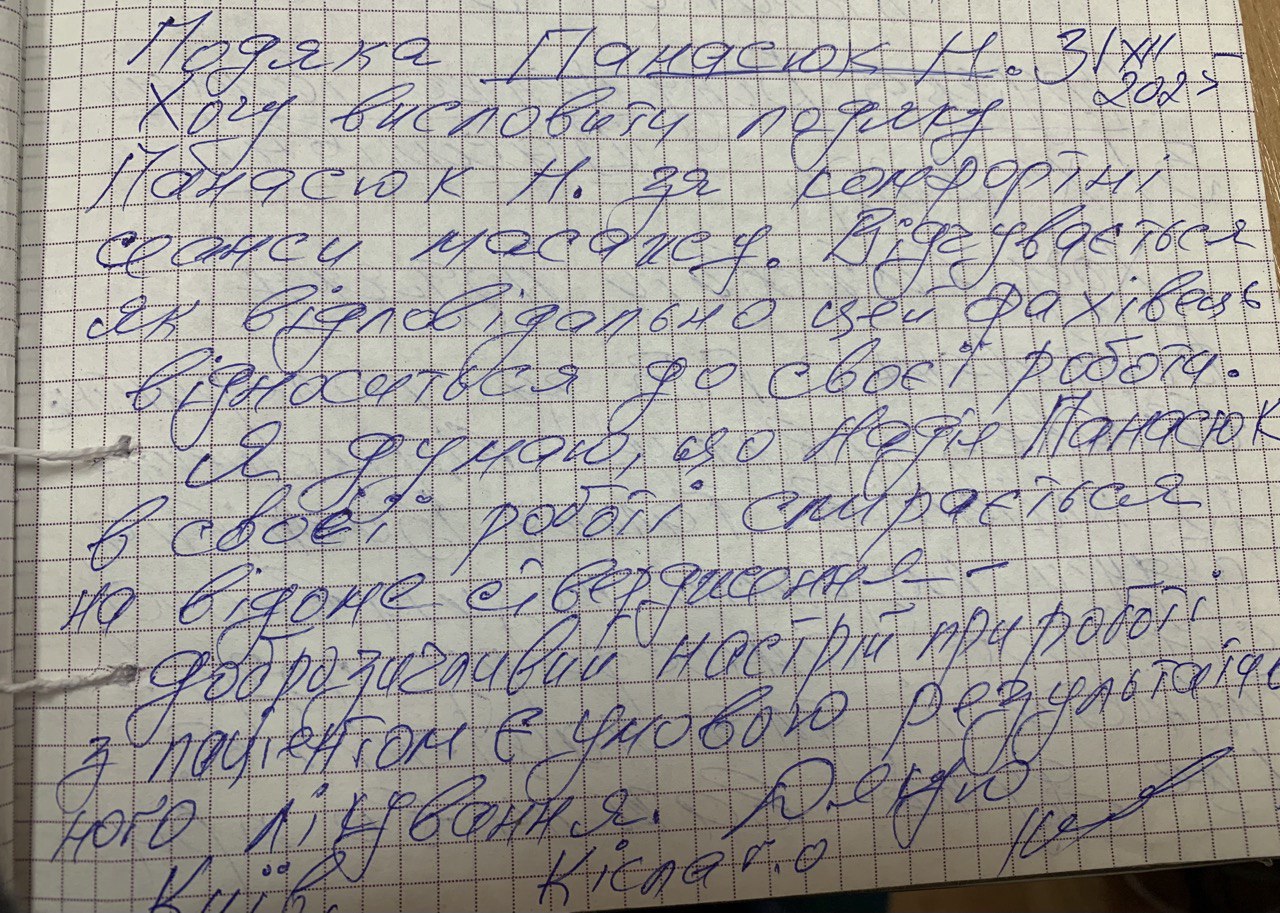 Подяка Панасюк Н. 31 XII
202
Хочу висловити подяку
Панасюк Н. за комфортні
сеанси масажу. Відчувається
як відповідально цей фахівець
відноситься до своєї роботи.
Я думаю, що Надія Панасюк
в своєї роботі спирається
на відоме ствердження -
доброзичливий настрій при роботі
з пацієнтом є умовою результатив
ного лікування. Дякую
Київ.